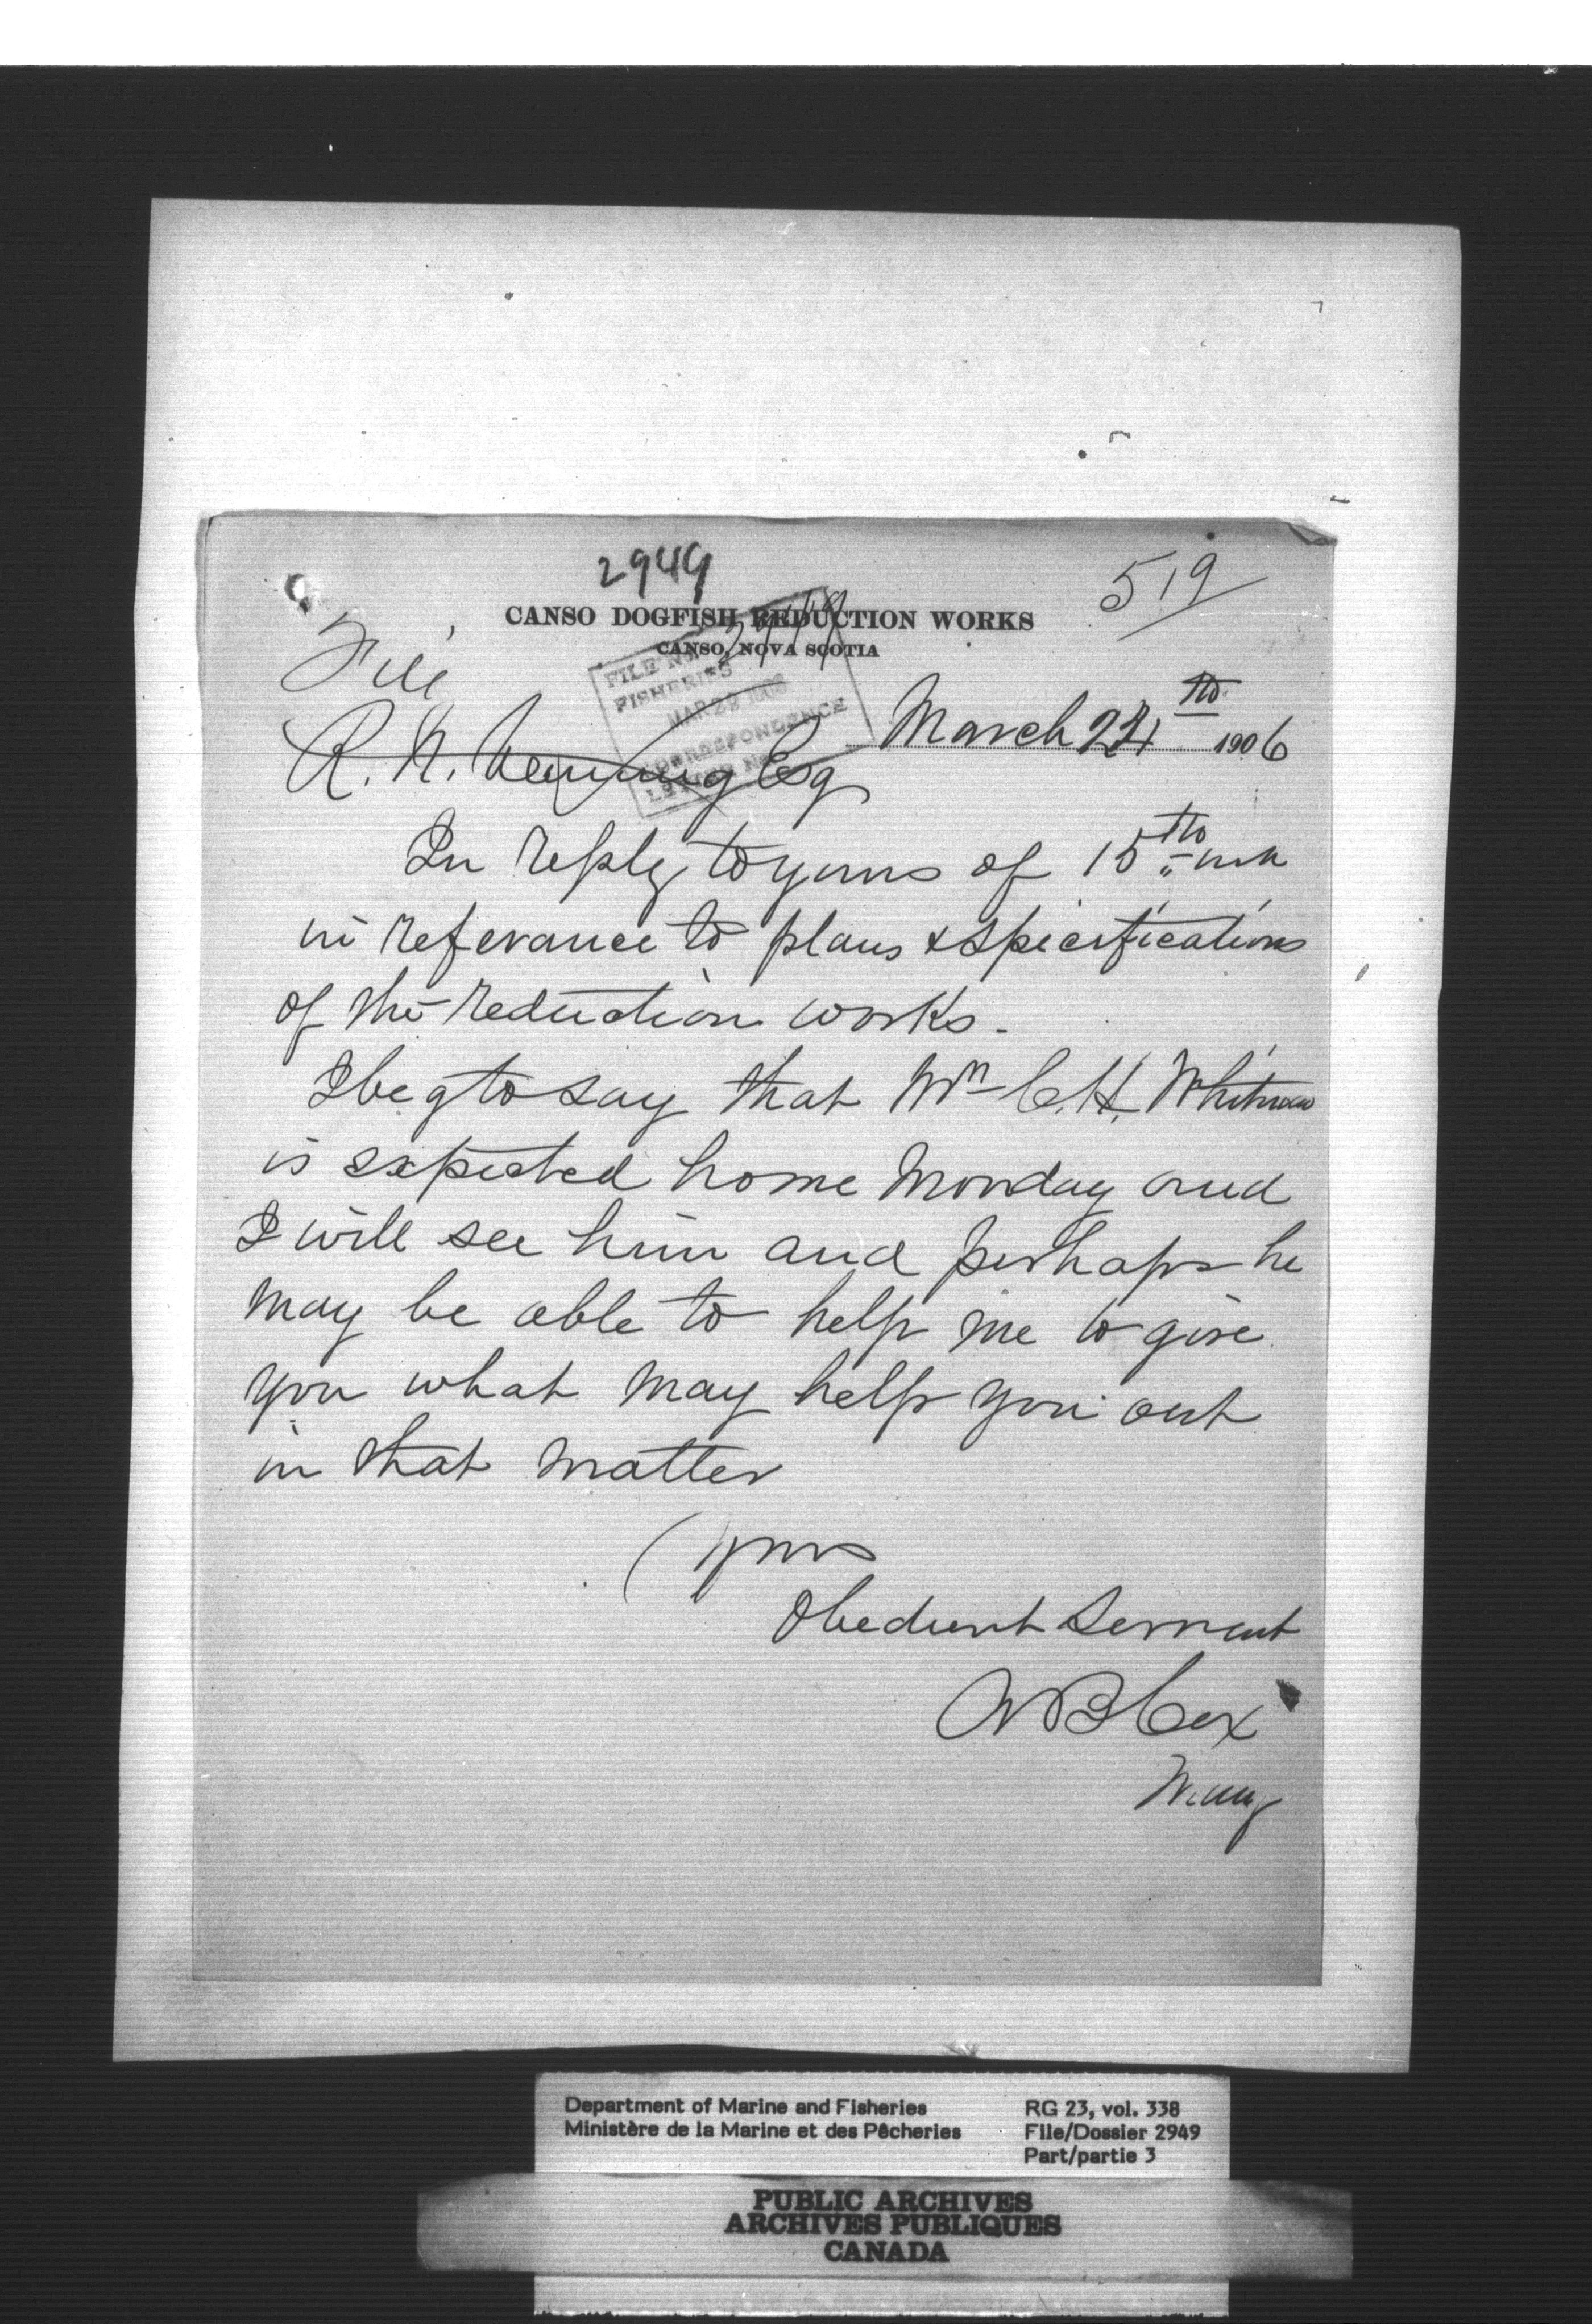 2949
519
CANSO DOGFISH REDUCTION WORKS
CANSO, NOVA SCOTIA
File
FILE No. 2949
FISHERIES
MAR 29 1906
CORRESPONDENCE
LETTER No.
March 24th 1906
R. N. Venning Esq
In reply to yours of 15th
in referance to plans & specifications
of the reduction works.
I beg to say that Mr C. H. Whitman
is expected home Monday and
I will see him and perhaps he
may be able to help me to give
you what may help you out
in that matter
Yours
Obedient Servant
Cox
Department of Marine and Fisheries
Ministère de la Marine et des Pêcheries
RG 23, vol. 338
File/Dossier 2949
Part/partie 3
PUBLIC ARCHIVES
ARCHIVES PUBLIQUES
CANADA